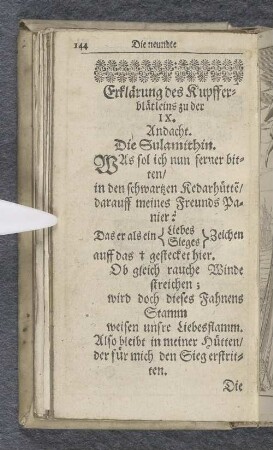 144 Die neundte
Erklärung des Kupffer-
blätleins zu der
IX.
Andacht.
Die Sulamithin.
WAs sol ich nun ferner bit-
ten/
in den schwartzen Kedarhüttē/
darauff meines Freunds Pa-
nier?
Das er als ein { Liebes } Zeichen
Sieges
auff das † gestecket hier.
Ob gleich rauche Winde
streichen;
wird doch dieses Fahnens
Stamm
weisen unsre Liebesflamm.
Also bleibt in meiner Hütten/
der für mich den Sieg erstrit-
ten.
Die